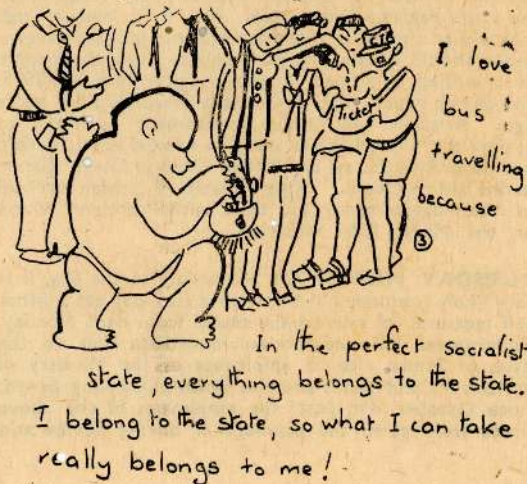 I love
bus
Ticket
travelling
because
3
In the perfect socialist
state, everything belongs to the state.
I belong to the state, so what I can take
really belongs to me!